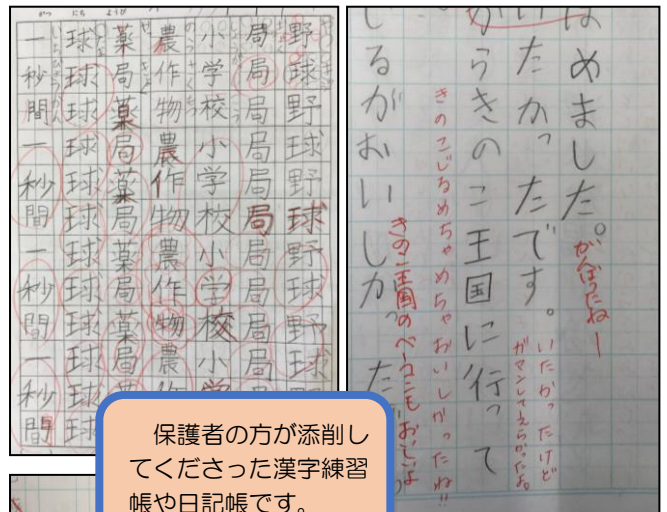 野球野球野球野球野球野球
局局局局局局局局局局局
小学校小学校小学校小学
農作物農作物農作物農
薬局薬局薬局薬局薬局
球球球球球球球球球球球球
一秒間一秒間一秒間一秒間
はめました。
がんばったねー
いたかったです。
いたかったけど
ガマンしてえらかったよ。
からきのこ王国に行って
きのこじるめちゃめちゃおいしかったね!!
しるがおいしかった
きのこ王国のベーコンもおいし
保護者の方が添削し
てくださった漢字練習
帳や日記帳です。